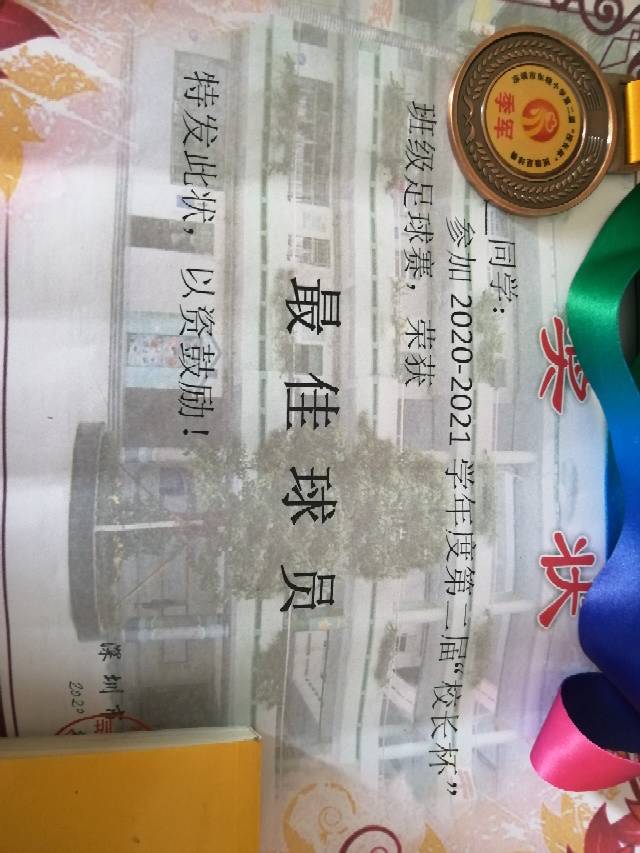 奖 状
同学:
参加 2020-2021 学年度第二届“校长杯”
班级足球赛，荣获
最佳球员
特发此状，以资鼓励！
深圳市
2020
季军